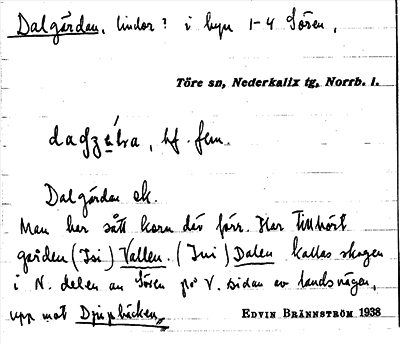 Dalgårdan, lindor? i byn 1-4 Sören,
Töre sn, Nederkalix tg, Norrb. l.
bf. fem.
Dalgårdan ek.
Man har sått korn där förr. Har tillhört
gården (Isi) Vallen. (Ini) Dalen kallas skogen
i N. delen av Sören på V. sidan av landsvägen,
upp mot Djupbäcken.
EDVIN BRÄNNSTRÖM 1938